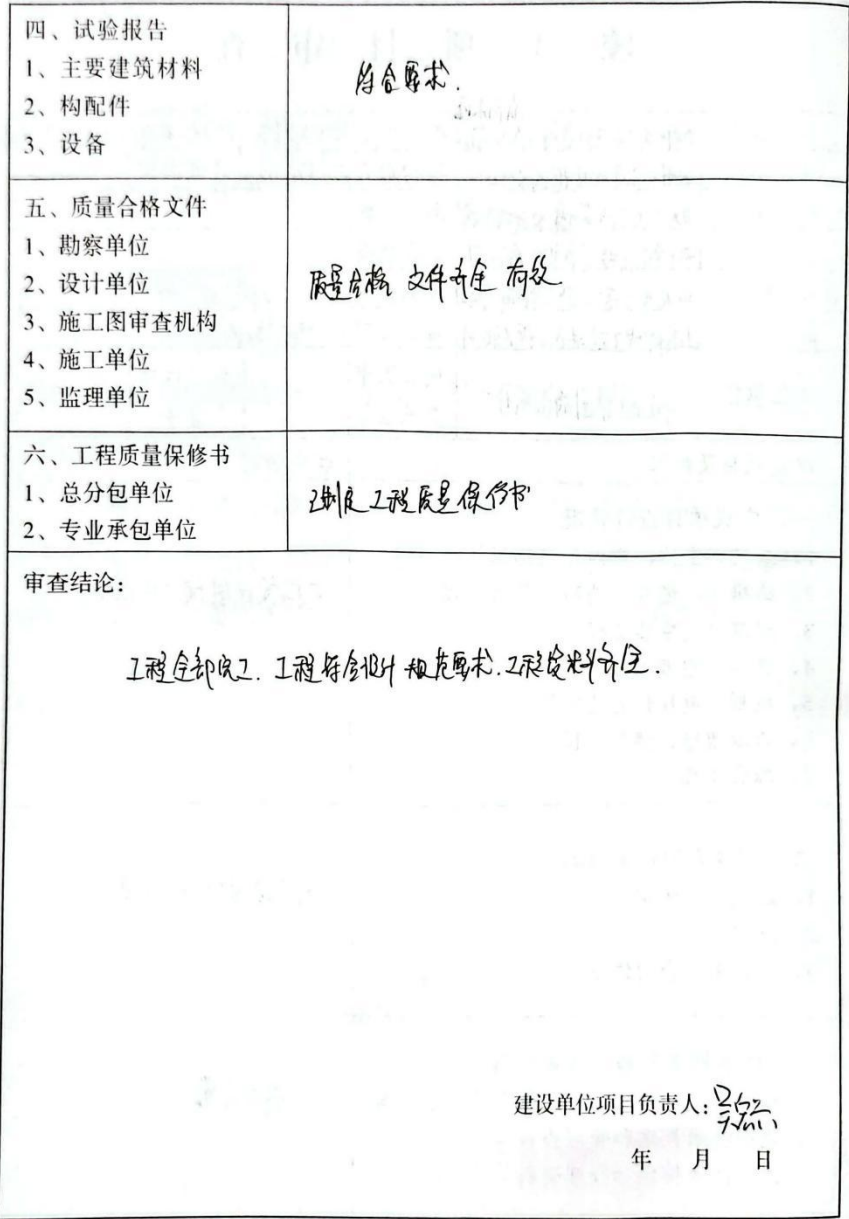 四、试验报告
1、主要建筑材料
2、构配件
3、设备
符合要求.
五、质量合格文件
1、勘察单位
2、设计单位
3、施工图审查机构
4、施工单位
5、监理单位
质量合格 文件齐全 有效
六、工程质量保修书
1、总分包单位
2、专业承包单位
工程质量保修书
审查结论:
工程全部完工. 工程符合设计 规范要求. 工程资料齐全.
建设单位项目负责人:
年 月 日